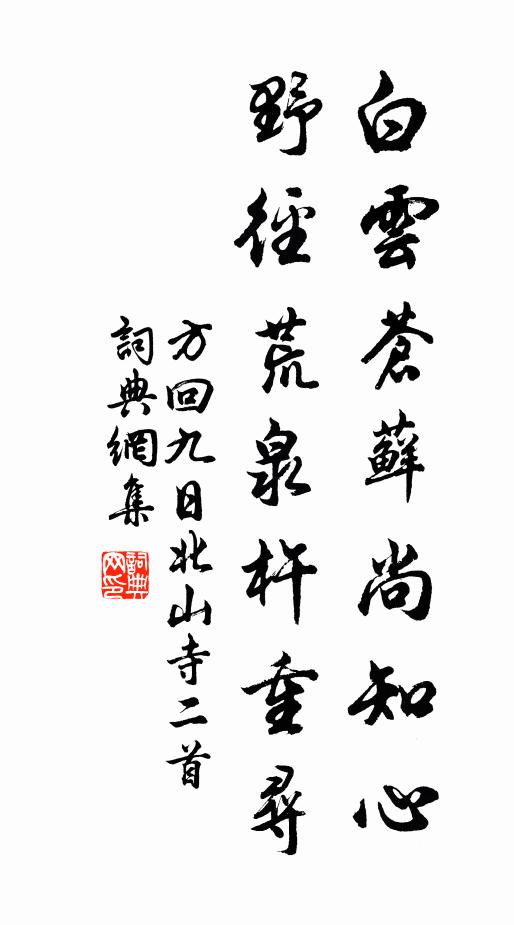 白雲蒼蘚尚知心
野徑荒泉杵重尋
方回九日北山寺二首
詞典網集
詞典网印